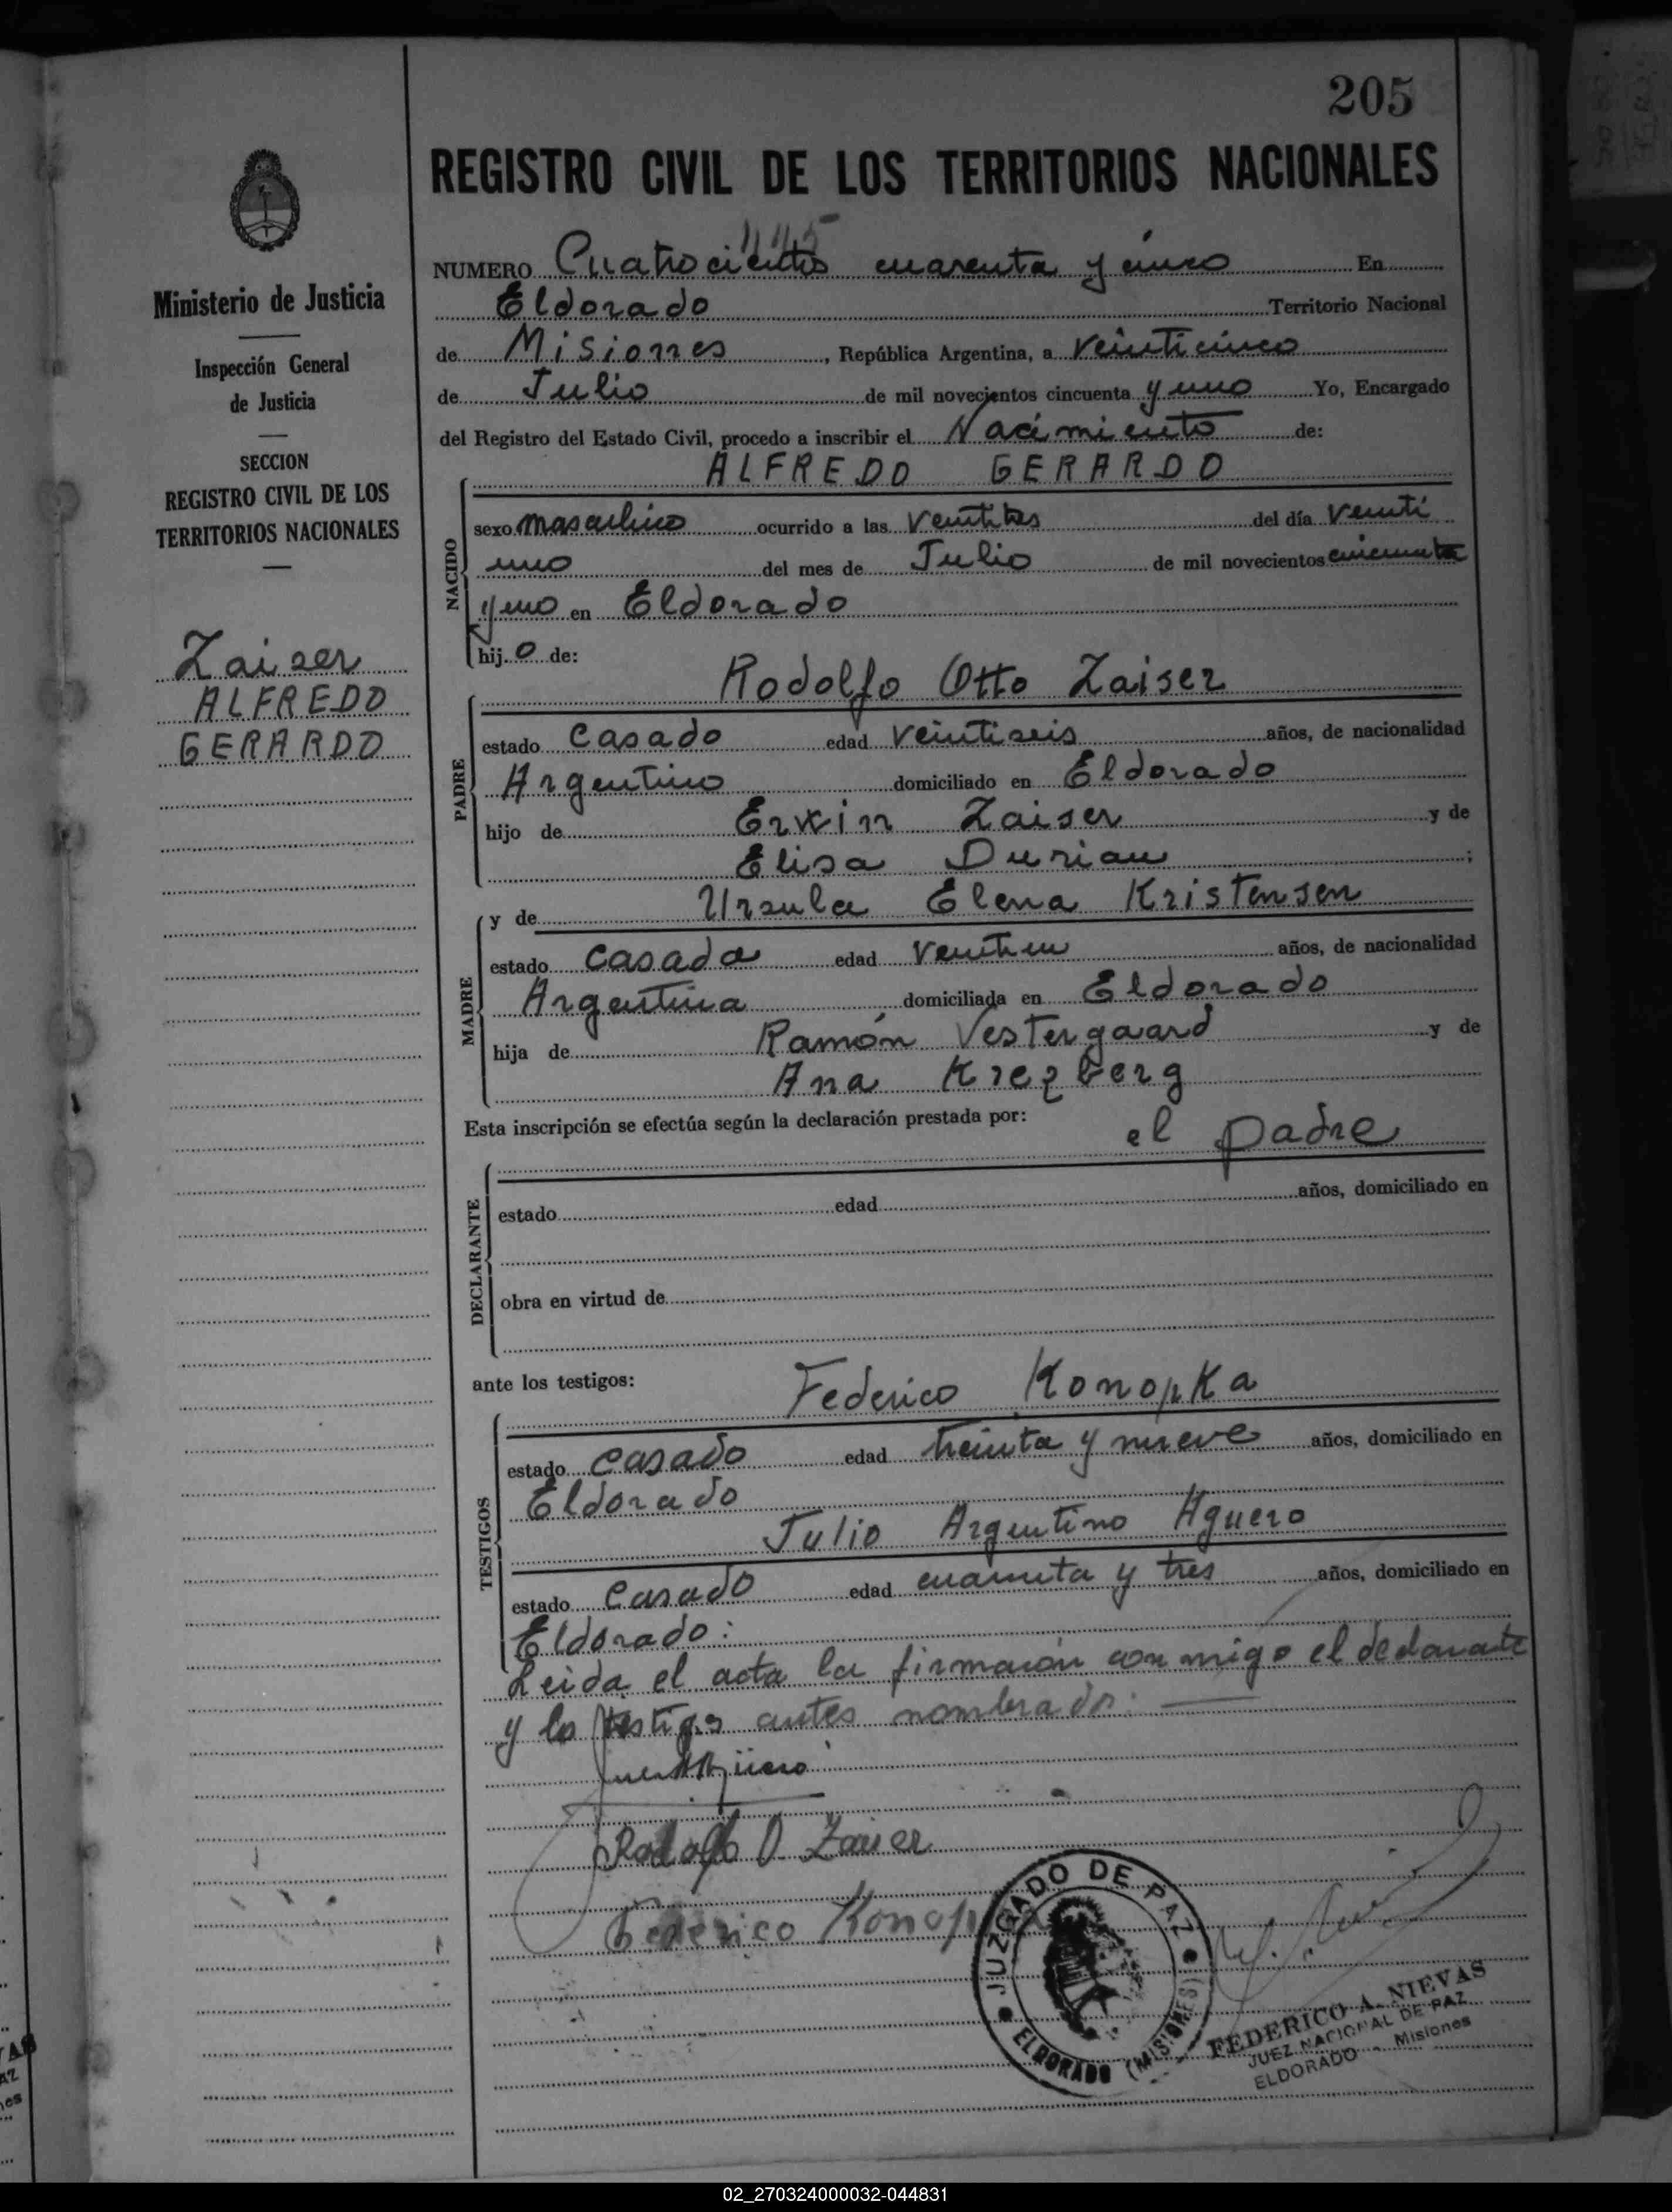 205
REGISTRO CIVIL DE LOS TERRITORIOS NACIONALES
Ministerio de Justicia
Inspección General
de Justicia
SECCION
REGISTRO CIVIL DE LOS
TERRITORIOS NACIONALES
Zaiser
ALFREDO
GERARDO
445
NUMERO Cuatrocientos cuarenta y cinco En
Eldorado Territorio Nacional
de Misiones, República Argentina, a veinticinco
de Julio de mil novecientos cincuenta y uno Yo, Encargado
del Registro del Estado Civil, procedo a inscribir el Nacimiento de:
ALFREDO GERARDO
NACIDO
sexo masculino ocurrido a las veintitres del día veinti
uno del mes de Julio de mil novecientos cincuenta
y uno en Eldorado
hijo de:
Rodolfo Otto Zaiser
PADRE
estado casado edad veintiseis años, de nacionalidad
Argentino domiciliado en Eldorado
hijo de Erwin Zaiser y de
Elisa Durian;
y de Ursula Elena Kristensen
MADRE
estado casada edad años, de nacionalidad
Argentina domiciliada en Eldorado
hija de Ramón Vestergaard y de
Ana Krezberg
Esta inscripción se efectúa según la declaración prestada por: el padre
DECLARANTE
estado edad años, domiciliado en
obra en virtud de
ante los testigos: Federico Konopka
TESTIGOS
estado casado edad treinta y nueve años, domiciliado en
Eldorado
Julio Argentino Aguero
estado casado edad cuarenta y tres años, domiciliado en
Eldorado:
Leida el acta la firmaron conmigo el declarante
y los testigos antes nombrados:
Rodolfo O. Zaiser
Federico Konopka
JUZGADO DE PAZ
ELDORADO (MISIONES)
FEDERICO A. NIEVAS
JUEZ NACIONAL DE PAZ
ELDORADO - Misiones
02_270324000032-044831